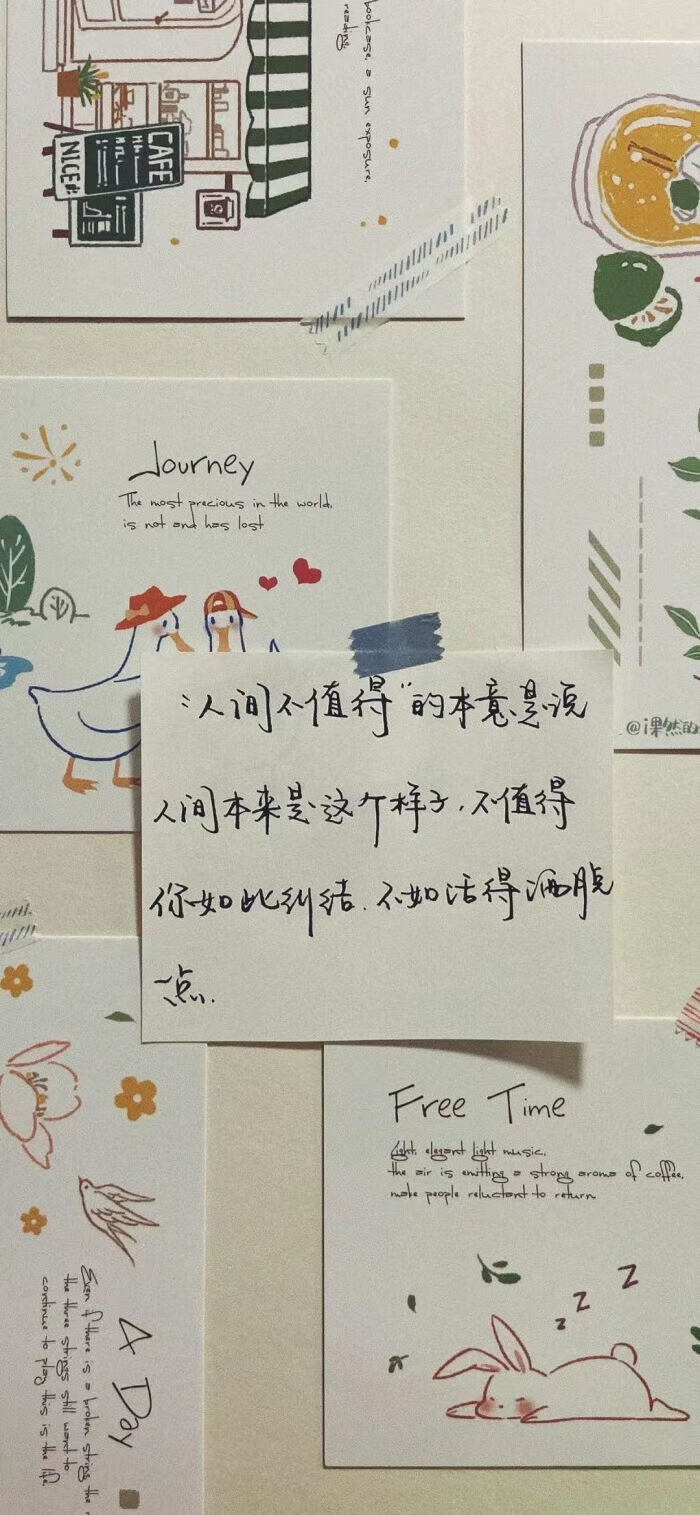 bookcase, a sun exposure,
reading.
CAFE
NICE
Journey
The most precious in the world,
is not and has lost
@i果然的
“人间不值得”的本意是说
人间本来是这个样子，不值得
你如此纠结．不如活得洒脱
一点．
Free Time
Light, elegant light music,
the air is emitting a strong aroma of coffee,
make people reluctant to return
A Day
Even if there is a broken string the
the three strings still want to
continue to play this is the life.